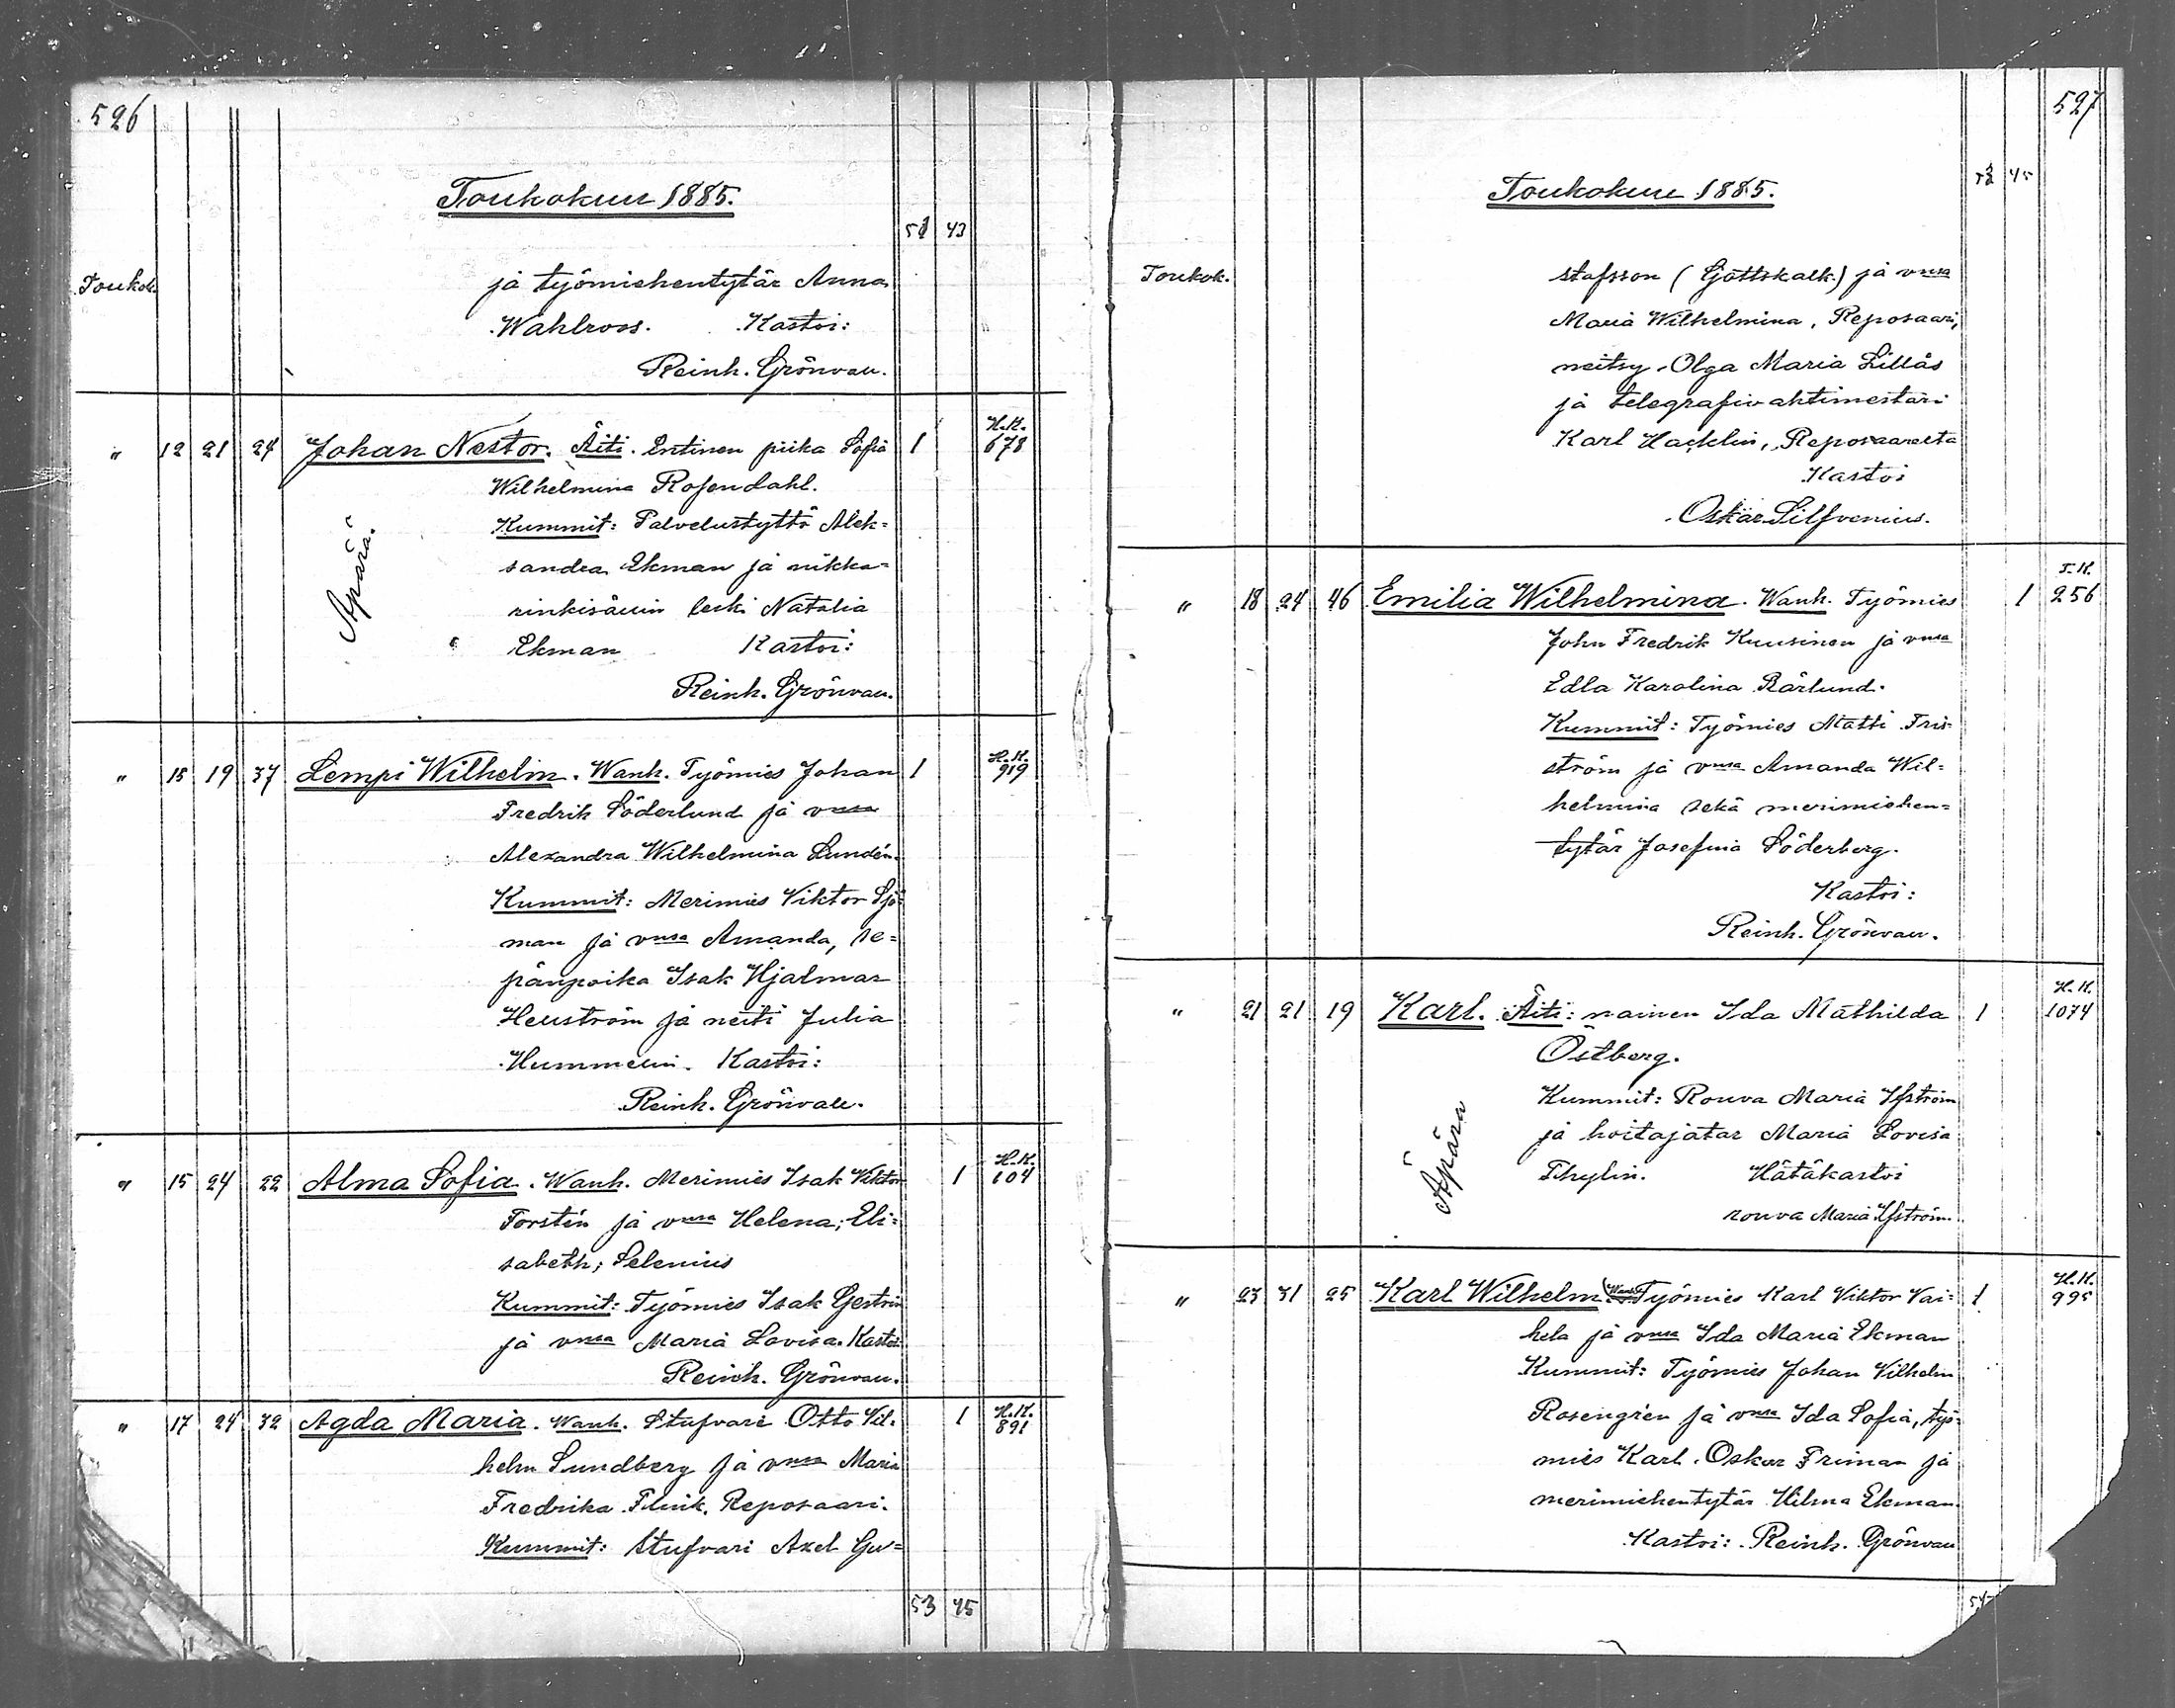 526
Toukokuu 1885.
51 43
Toukok.
ja työmiehentytär Anna
Wahlroos. Kastoi:
Reinh. Grönvall.
" 12 21 24 Johan Nestor. Äiti. Entinen piika Sofia 1 H.K. 678
Wilhelmina Rosendahl.
Äpärä.
Kummit: Palvelustyttö Alek=
sandra Ekman ja nikka=
rinkisällin leski Natalia
Ekman Kastoi:
Reinh. Grönvall.
" 15 19 37 Lempi Wilhelm. Wanh. Työmies Johan 1 H.K. 919
Fredrik Söderlund ja vmsa
Alexandra Wilhelmina Lundén.
Kummit: Merimies Viktor Sjö=
man ja vmsa Amanda, se=
pänpoika Isak Hjalmar
Hellström ja neiti Julia
Hummelin. Kastoi:
Reinh. Grönvall.
" 15 24 22 Alma Sofia. Wanh. Merimies Isak Viktor 1 H.K. 104
Forstén ja vmsa Helena, Eli=
sabeth, Selenius
Kummit: Työmies Isak Gestrin
ja vmsa Maria Lovisa. Kastoi
Reinh. Grönvall.
" 17 24 32 Agda Maria. Wanh. Stufvari Otto Vil= 1 H.K. 891
helm Sundberg ja vmsa Maria
Fredrika Flink, Reposaari.
Kummit: Stufvari Axel Gu=
53 45
527
Toukokuu 1885.
53 45
Toukok.
stafsson (Gottskalk) ja vmsa
Maria Wilhelmina, Reposaari,
neitsy Olga Maria Lillås
ja telegrafivahtimestari
Karl Hacklin, Reposaarelta
Kastoi
Oskar Silfvenius.
" 18 24 46 Emilia Wilhelmina. Wanh. Työmies 1 T.K. 256
John Fredrik Kuusinen ja vmsa
Edla Karolina Bärlund.
Kummit: Työmies Matti Fris=
ström ja vmsa Amanda Wil=
helmina sekä merimiehen=
tytär Josefina Söderberg.
Kastoi:
Reinh. Grönvall.
" 21 21 19 Karl. Äiti: nainen Ida Mathilda 1 H.K. 1074
Östberg.
Äpärä
Kummit: Rouva Maria Ifström
ja hoitajatar Maria Lovisa
Thylin. Hätäkastoi
rouva Maria Ifström.
" 23 31 25 Karl Wilhelm Wanh. Työmies Karl Viktor Vai= 1 H.K. 995
hela ja vmsa Ida Maria Ekman
Kummit: Työmies Johan Vilhelm
Rosengrén ja vmsa Ida Sofia, työ=
mies Karl Oskar Friman ja
merimiehentytär Hilma Ekman.
Kastoi: Reinh. Grönvall